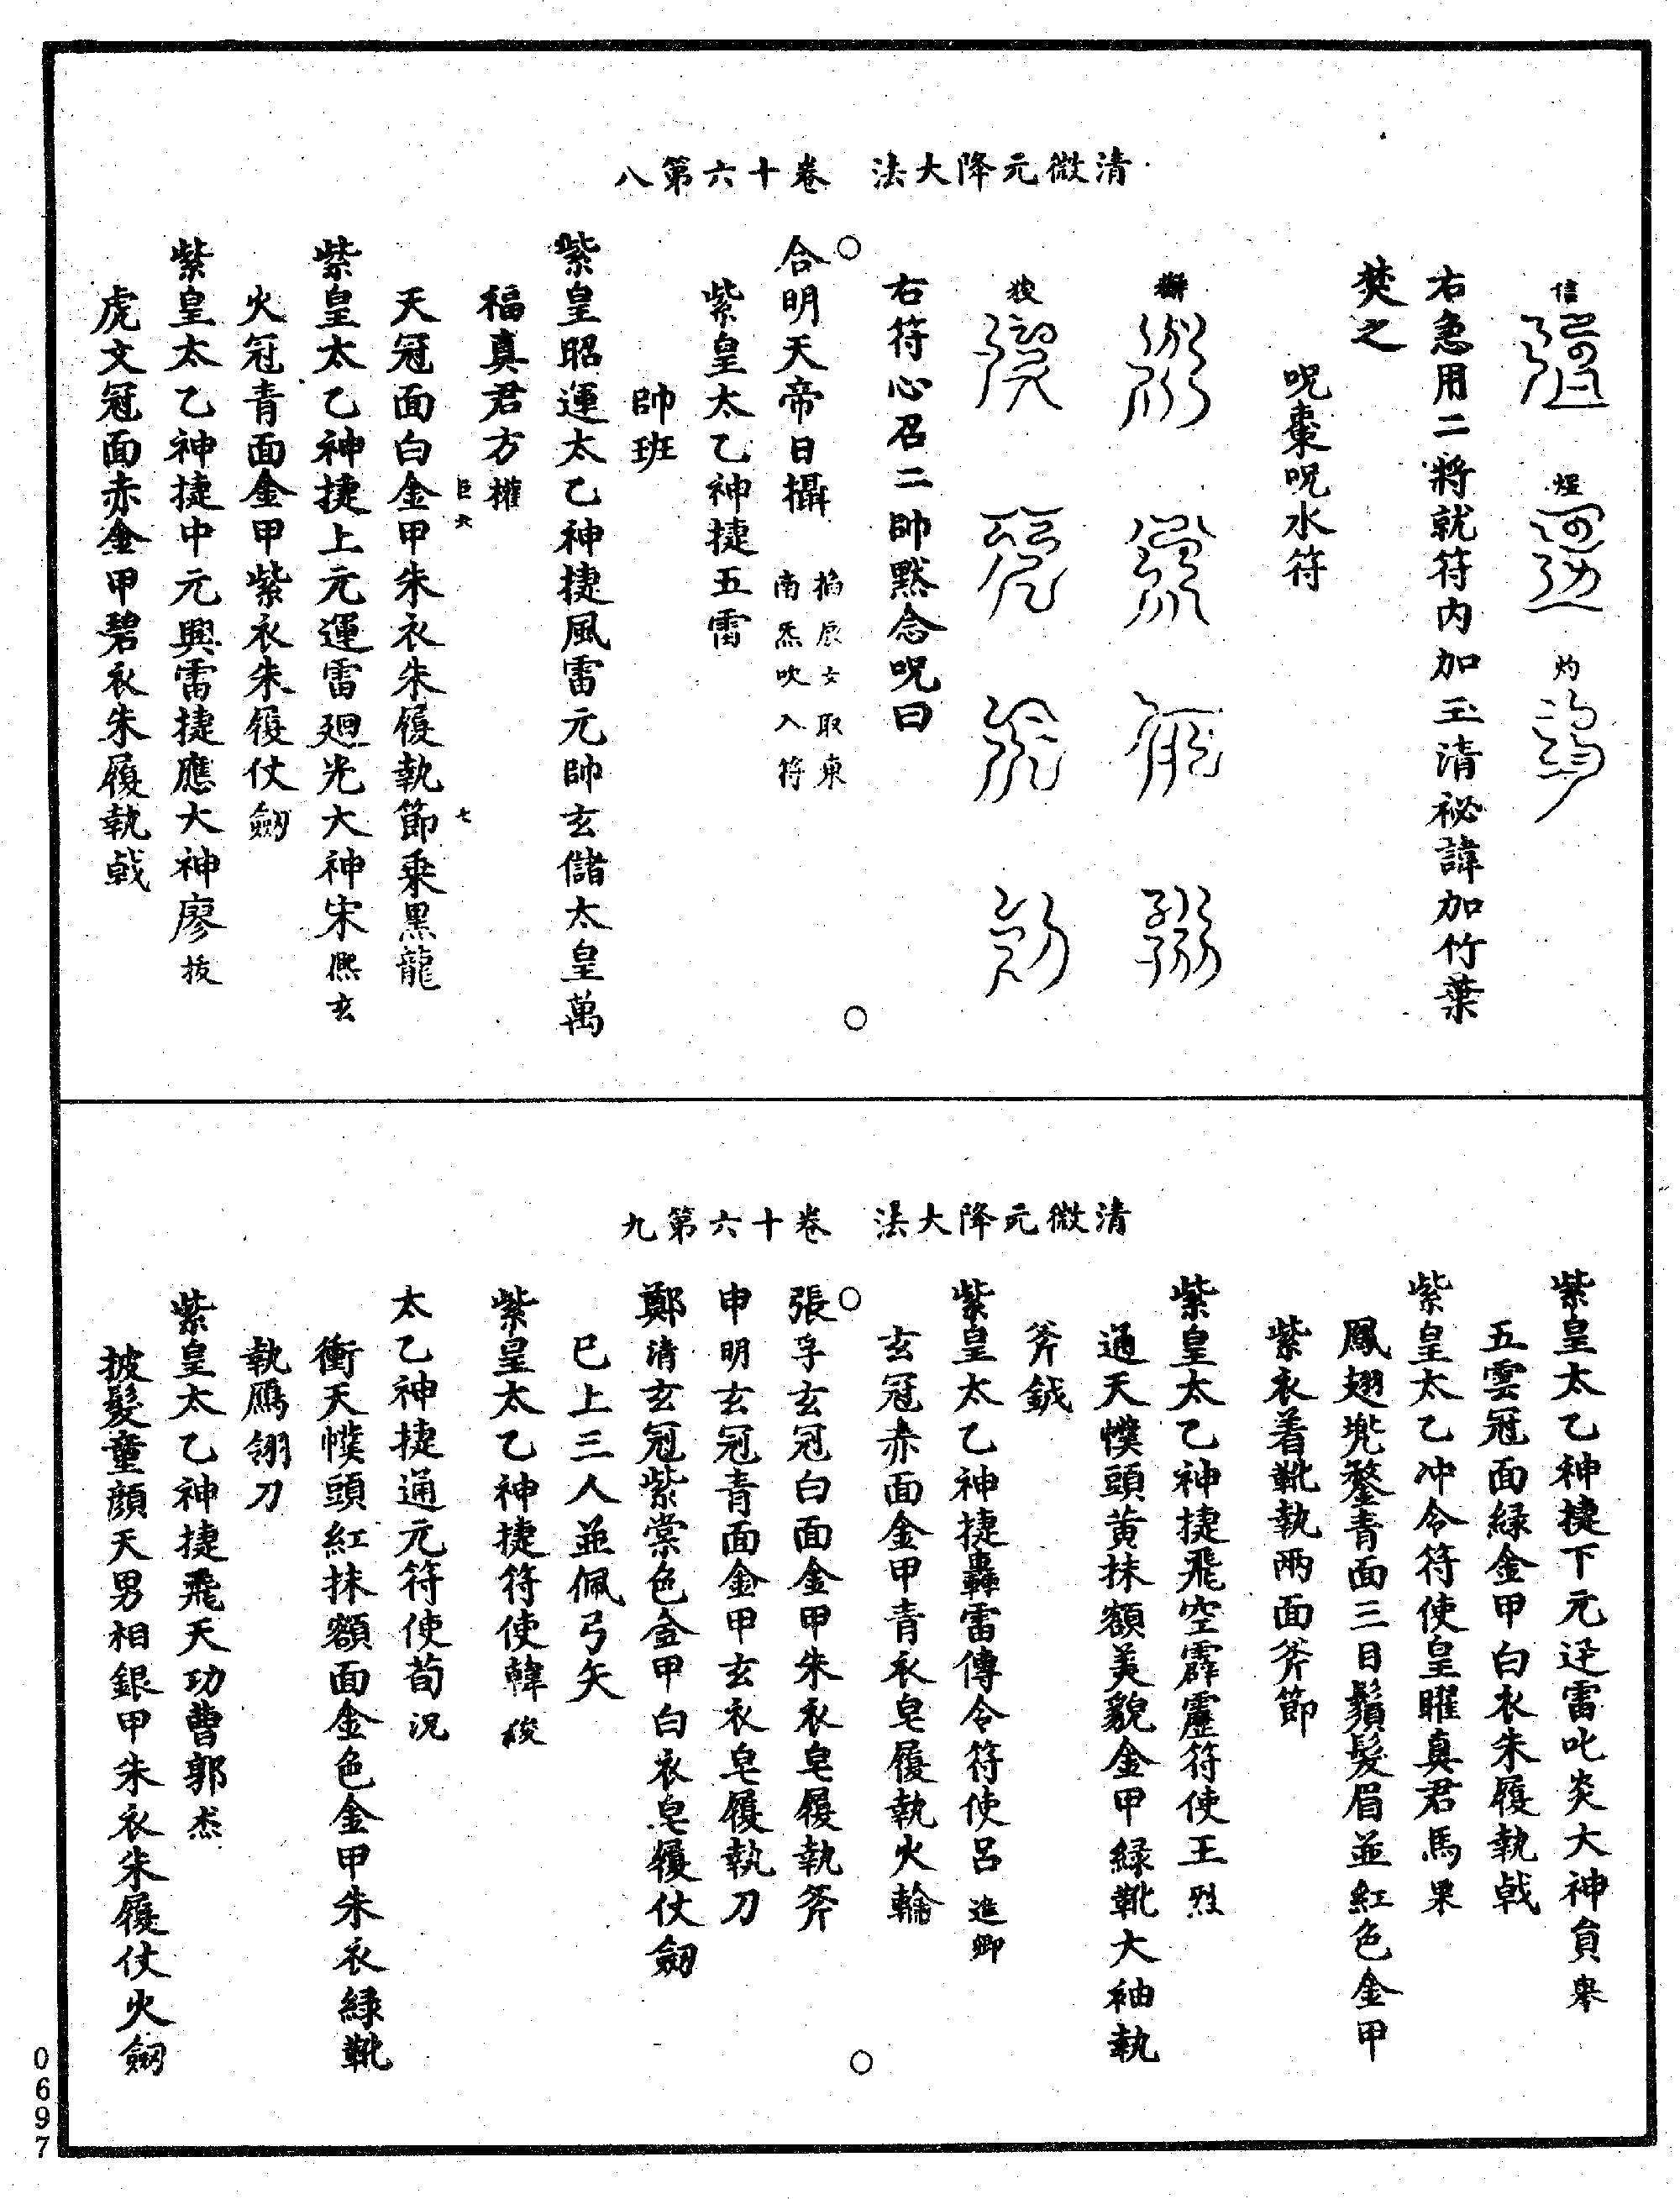 清微元降大法　卷十六第八
信　煋　灼
右急用二將就符内加玉清祕諱加竹葉
焚之
呪棗呪水符
右符心召二帥黙念呪曰
合明天帝日攝 掐辰文取東南炁吹入符
紫皇太乙神捷五雷
帥班
紫皇昭運太乙神捷風雷元帥玄儲太皇萬
福真君方權
天冠面白金甲朱衣朱履執節乗黒龍
紫皇太乙神捷上元運雷廻光大神宋熈玄
火冠青面金甲紫衣朱履仗劒
紫皇太乙神捷中元興雷捷應大神廖拔
虎文冠面赤金甲碧衣朱履執戟
清微元降大法　卷十六第九
紫皇太乙神捷下元迋雷叱炎大神貟舉
五雲冠面緑金甲白衣朱履執戟
紫皇太乙冲令符使皇曜真君馬果
鳳翅兠鍪青面三目鬚髮眉並紅色金甲
紫衣着靴執兩面斧節
紫皇太乙神捷飛空霹靂符使王烈
通天幞頭黄抹額美貌金甲緑靴大袖執
斧鉞
紫皇太乙神捷轟雷傳令符使呂進卿
玄冠赤面金甲青衣皂履執火輪
張孚玄冠白面金甲朱衣皂履執斧
申明玄冠青面金甲玄衣皂履執刀
鄭清玄冠紫棠色金甲白衣皂履仗劒
巳上三人並佩弓矢
紫皇太乙神捷符使韓俊
太乙神捷通元符使荀況
衝天幞頭紅抹額面金色金甲朱衣緑靴
執鴈翎刀
紫皇太乙神捷飛天功曹郭杰
披髮童顔天男相銀甲朱衣朱履仗火劒
0697